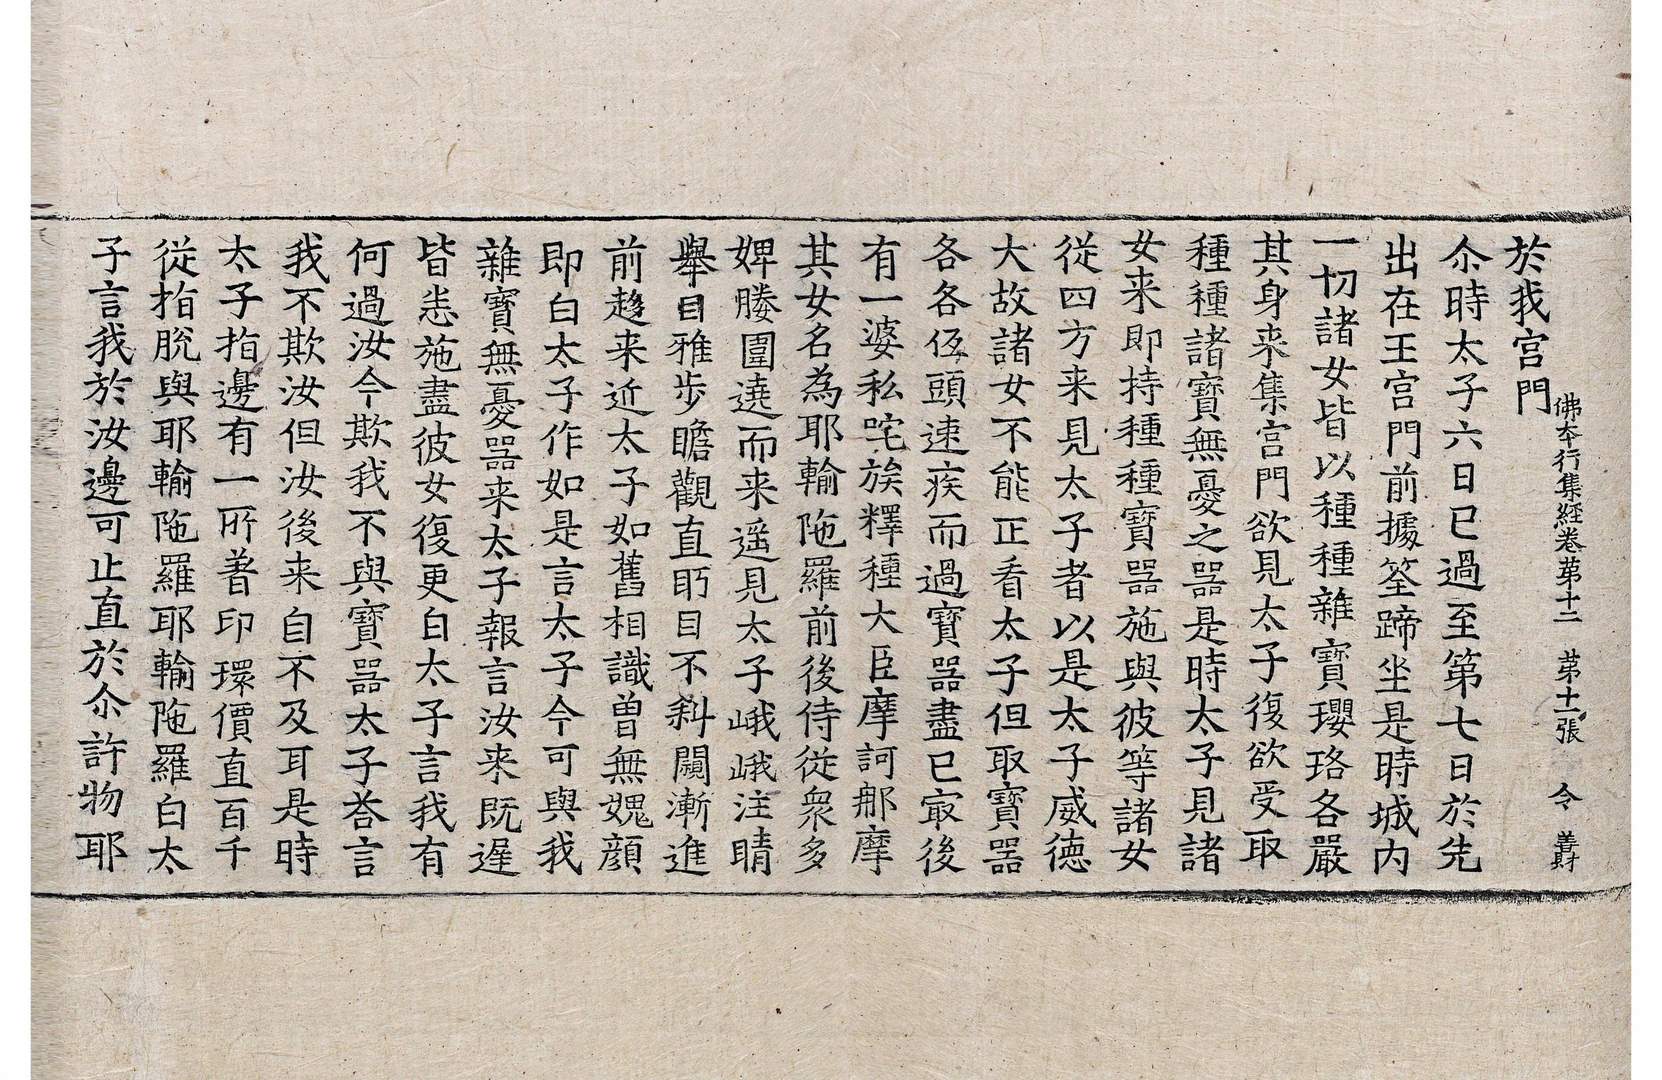 佛本行集経卷苐十二　苐十一張　令　善財
於我宮門
尒時太子六日已過至第七日於先
出在王宮門前據筌蹄坐是時城内
一切諸女皆以種種雜寶瓔珞各嚴
其身来集宮門欲見太子復欲受取
種種諸寶無憂之器是時太子見諸
女来即持種種寶器施與彼等諸女
従四方来見太子者以是太子威徳
大故諸女不能正看太子但取寶器
各各伍頭速疾而過寶器盡已㝡後
有一婆私咤族釋種大臣摩訶那摩
其女名為耶輸陁羅前後侍従衆多
婢媵圍遶而来遥見太子峨峨注睛
舉目雅步瞻觀直眄目不斜闚漸進
前趍来近太子如舊相識曽無媿顔
即白太子作如是言太子今可與我
雜寶無憂器来太子報言汝来既遅
皆恚施盡彼女復更白太子言我有
何過汝今欺我不與寶器太子荅言
我不欺汝但汝後来自不及耳是時
太子指邊有一所著印環價直百千
従指脫與耶輸陁羅耶輸陁羅白太
子言我於汝邊可止直於尒許物耶